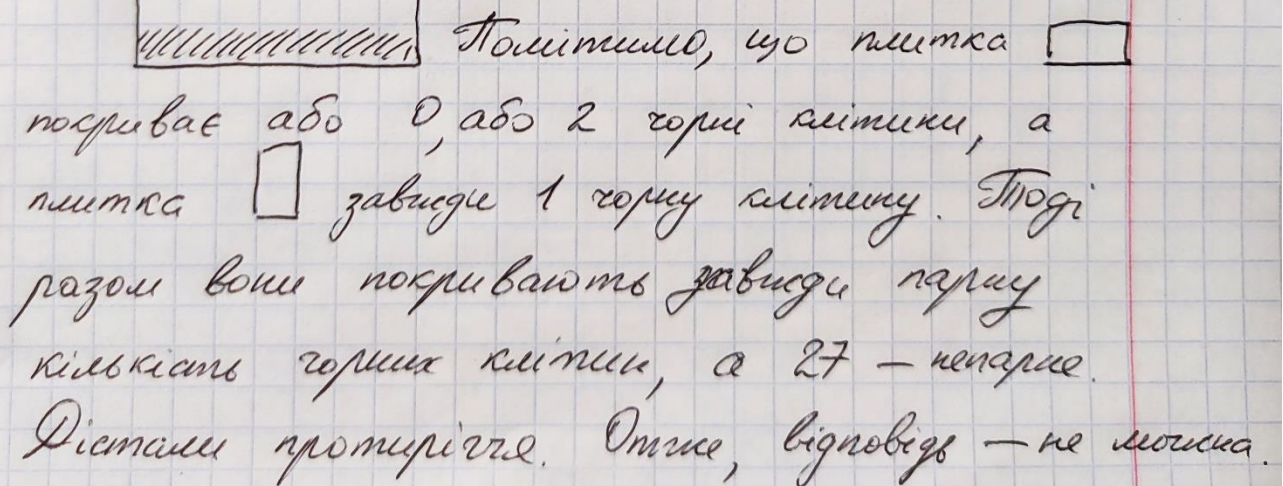 Помітимо, що плитка
покриває або 0, або 2 чорні клітини, а
плитка завжди 1 чорну клітину. Тоді
разом вони покривають завжди парну
кількість чорних клітин, а 27 – непарне.
Дістали протиріччя. Отже, відповідь – не можна.